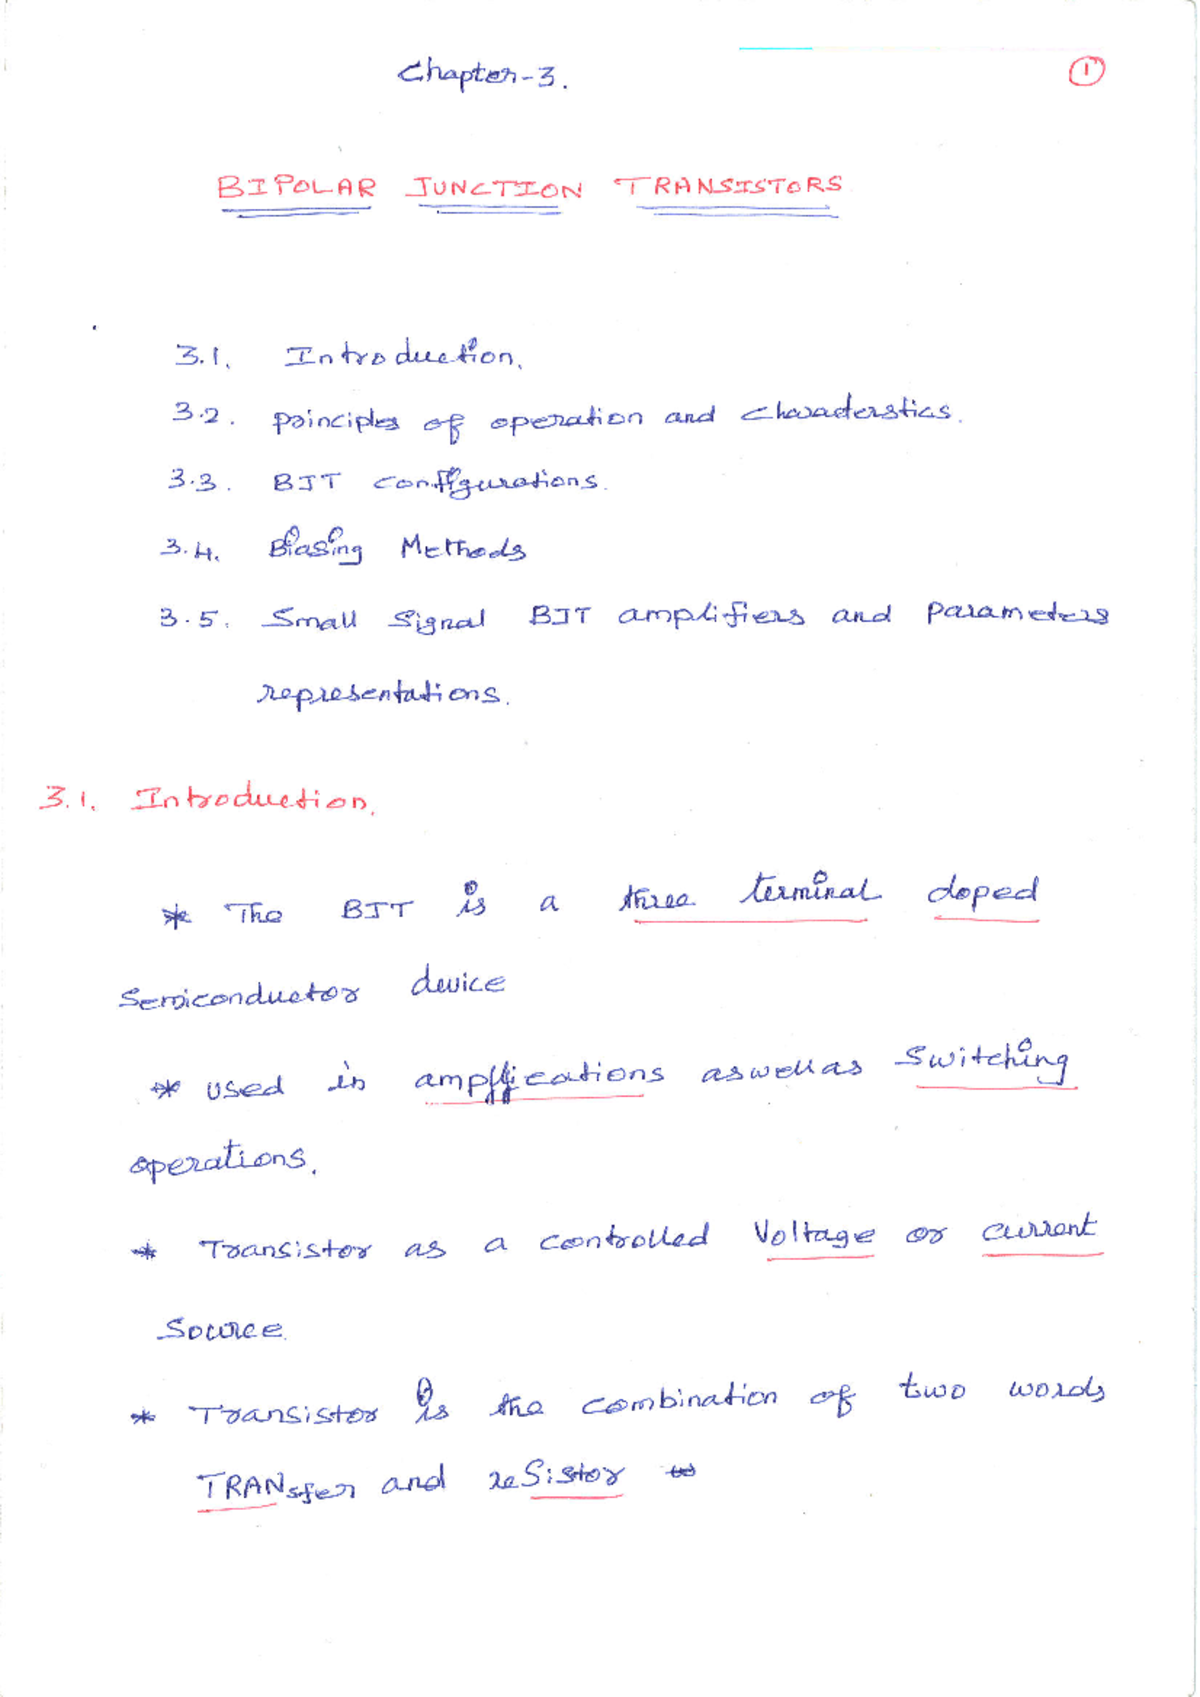 Chapter-3.
1
BIPOLAR JUNCTION TRANSISTORS
3.1. Introduction.
3.2. principles of operation and characterstics.
3.3. BJT configurations.
3.4. Biasing Methods
3.5. Small Signal BJT amplifiers and Parameters
representations.
3.1. Introduction.
* The BJT is a three terminal doped
Semiconductor device
* used in amplifications aswellas Switching
operations.
* Transistor as a controlled Voltage or current
Source.
* Transistor is the combination of two words
TRANsfer and reSistor